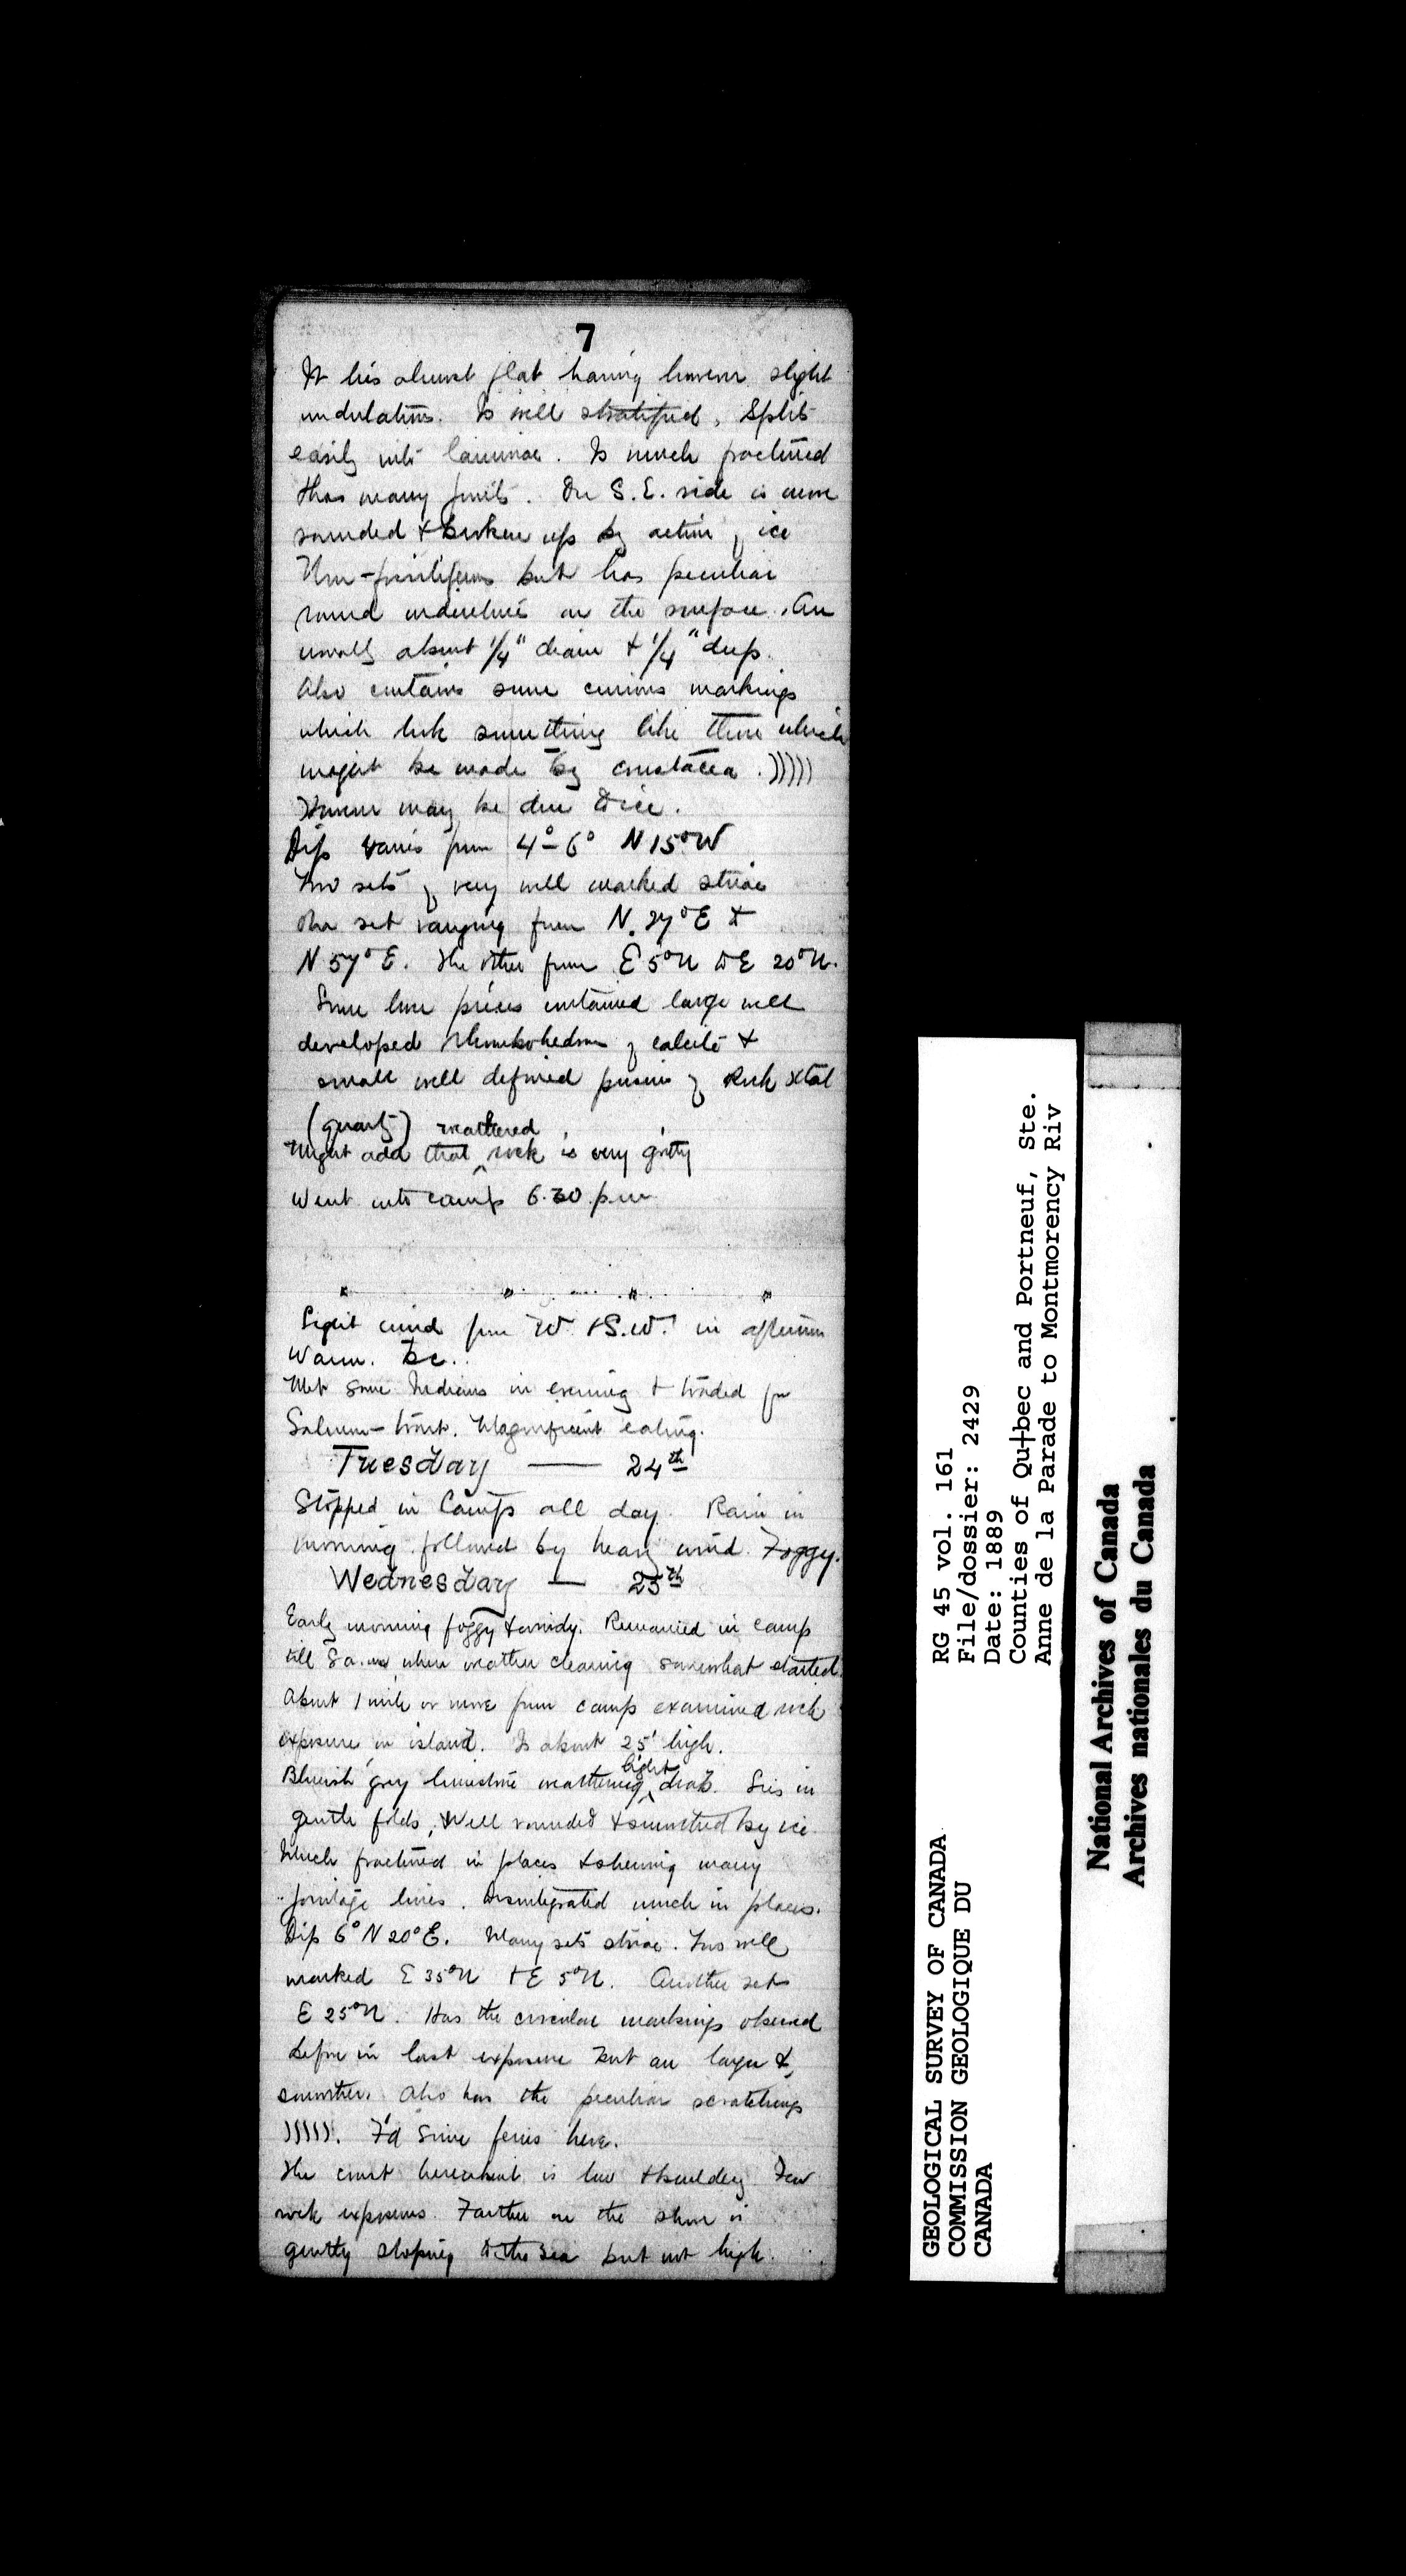 7
It lies almost flat having however slight
undulations. Is well stratified. Splits
easily into laminae. Is much fractured
& has many joints. On S.E. side is
rounded & broken up by action of ice
Non-fossiliferous but has peculiar
round indentures on the surface. Are
usually about 1/4" diam & 1/4" deep.
Also contains some curious markings
which look something like those which
might be made by crustacea. )))))
However may be due to ice.
Dip varies from 4°-6° N15°W
Two sets of very well marked striae
One set varying from N.27°E &
N57°E. The other from E5°N to E 20°N.
Some loose pieces contained large well
developed rhombohedrons of calcite &
small well defined prisms of Rock Xtal
(quartz)
Might add that weathered rock is very gritty
Went into camp 6.30 p.m
" " " "
Light wind from W. & S.W. in afternoon
Warm. bc.
Met some Indians in evening & traded for
Salmon-trout. Magnificent eating.
Tuesday — 24th
Stopped in Camp all day. Rain in
morning followed by heavy wind. Foggy.
Wednesday — 25th
Early morning foggy & windy. Remained in camp
till 8 a.m. when weather clearing somewhat started.
About 1 mile or more from camp examined rock
exposure on island. Is about 25' high.
Blueish grey limestone weathering light drab. Lies in
gentle folds, & well rounded & smoothed by ice
Much fractured in places & showing many
jointage lines. Disintegrated much in places.
Dip 6° N20°E. Many sets striae. Two well
marked E35°N & E 5°N. Another set
E 25°N. Has the circular markings observed
before in last exposure but are larger &
smoother. Also has the peculiar scratchings
))))). F'd some ferns here.
The coast hereabout is low & bouldery. Few
rock exposures. Farther on the shore is
gently sloping to the sea but not high.
GEOLOGICAL SURVEY OF CANADA
COMMISSION GEOLOGIQUE DU
CANADA
RG 45 vol. 161
File/dossier: 2429
Date: 1889
Counties of Qu†bec and Portneuf, Ste.
Anne de la Parade to Montmorency Riv
National Archives of Canada
Archives nationales du Canada